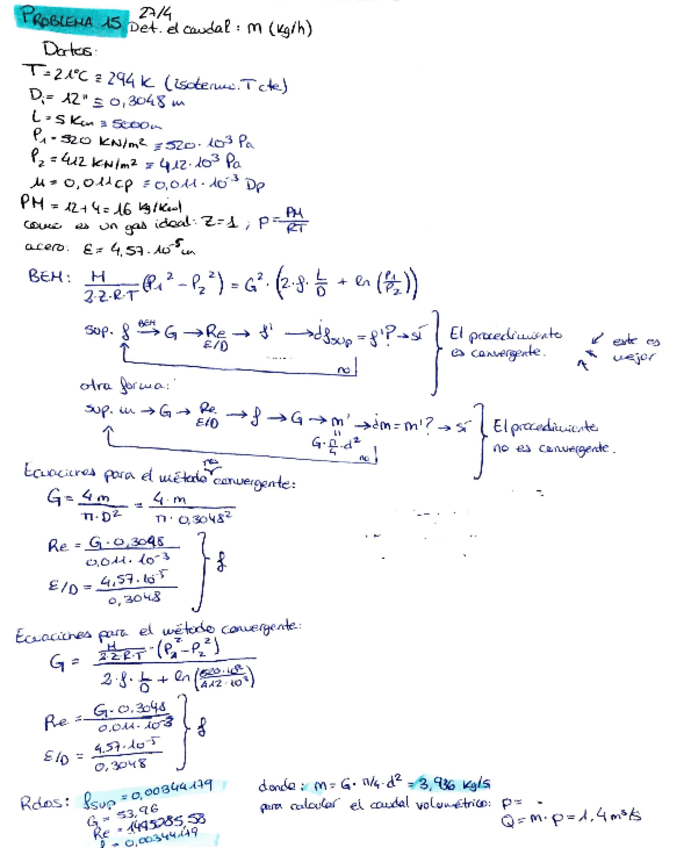 PROBLEMA 15 27/4 Det. el caudal: m (kg/h)
Datos:
T = 21ºC ≡ 294 K (isoterm. T cte)
Di = 12" ≡ 0,3048 m
L = 5 Km ≡ 5000 m
P1 = 520 KN/m² ≡ 520·10³ Pa
P2 = 412 KN/m² ≡ 412·10³ Pa
μ = 0,011 cp ≡ 0,011·10⁻³ Dp
PM = 12+4 = 16 kg/kmol
como es un gas ideal: Z=1 ; ρ = PM/RT
acero: ε = 4,57·10⁻⁵ m
BEM: M/(2·Z·R·T) (P1² - P2²) = G²·(2·f·L/D + ln(P1/P2))
sup. f →BEM G → Re ε/D → f' → ¿fsup = f'? → sí } El procedimiento es convergente. este es mejor
no
otra forma:
sup. m → G → Re ε/D → f → G → m' → ¿m = m'? → sí } El procedimiento no es convergente.
G·π/4·d² no
Ecuaciones para el método no convergente:
G = 4m/(π·D²) = 4·m/(π·0,3048²)
Re = G·0,3048/(0,011·10⁻³) } f
ε/D = 4,57·10⁻⁵/0,3048
Ecuaciones para el método convergente:
G = M/(2·Z·R·T)·(P1² - P2²)
2·f·L/D + ln(520·10³/412·10³)
Re = G·0,3048/(0,011·10⁻³) } f
ε/D = 4,57·10⁻⁵/0,3048
Rdos: fsup = 0,00344179
G = 53,96
Re = 1495285,58
f = 0,00344179
donde: m = G·π/4·d² = 3,936 kg/s
para calcular el caudal volumétrico: ρ =
Q = m·ρ = 1,4 m³/s